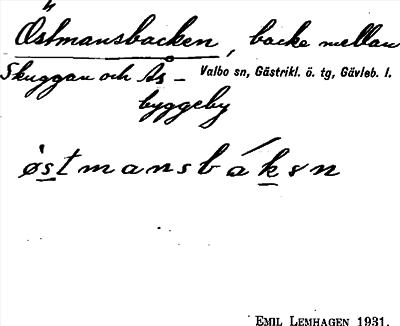 Östmansbacken, backe mellan
Skuggan och Ås- Valbo sn, Gästrikl. ö. tg, Gävleb. l.
byggeby
östmansbáksn
EMIL LEMHAGEN 1931.